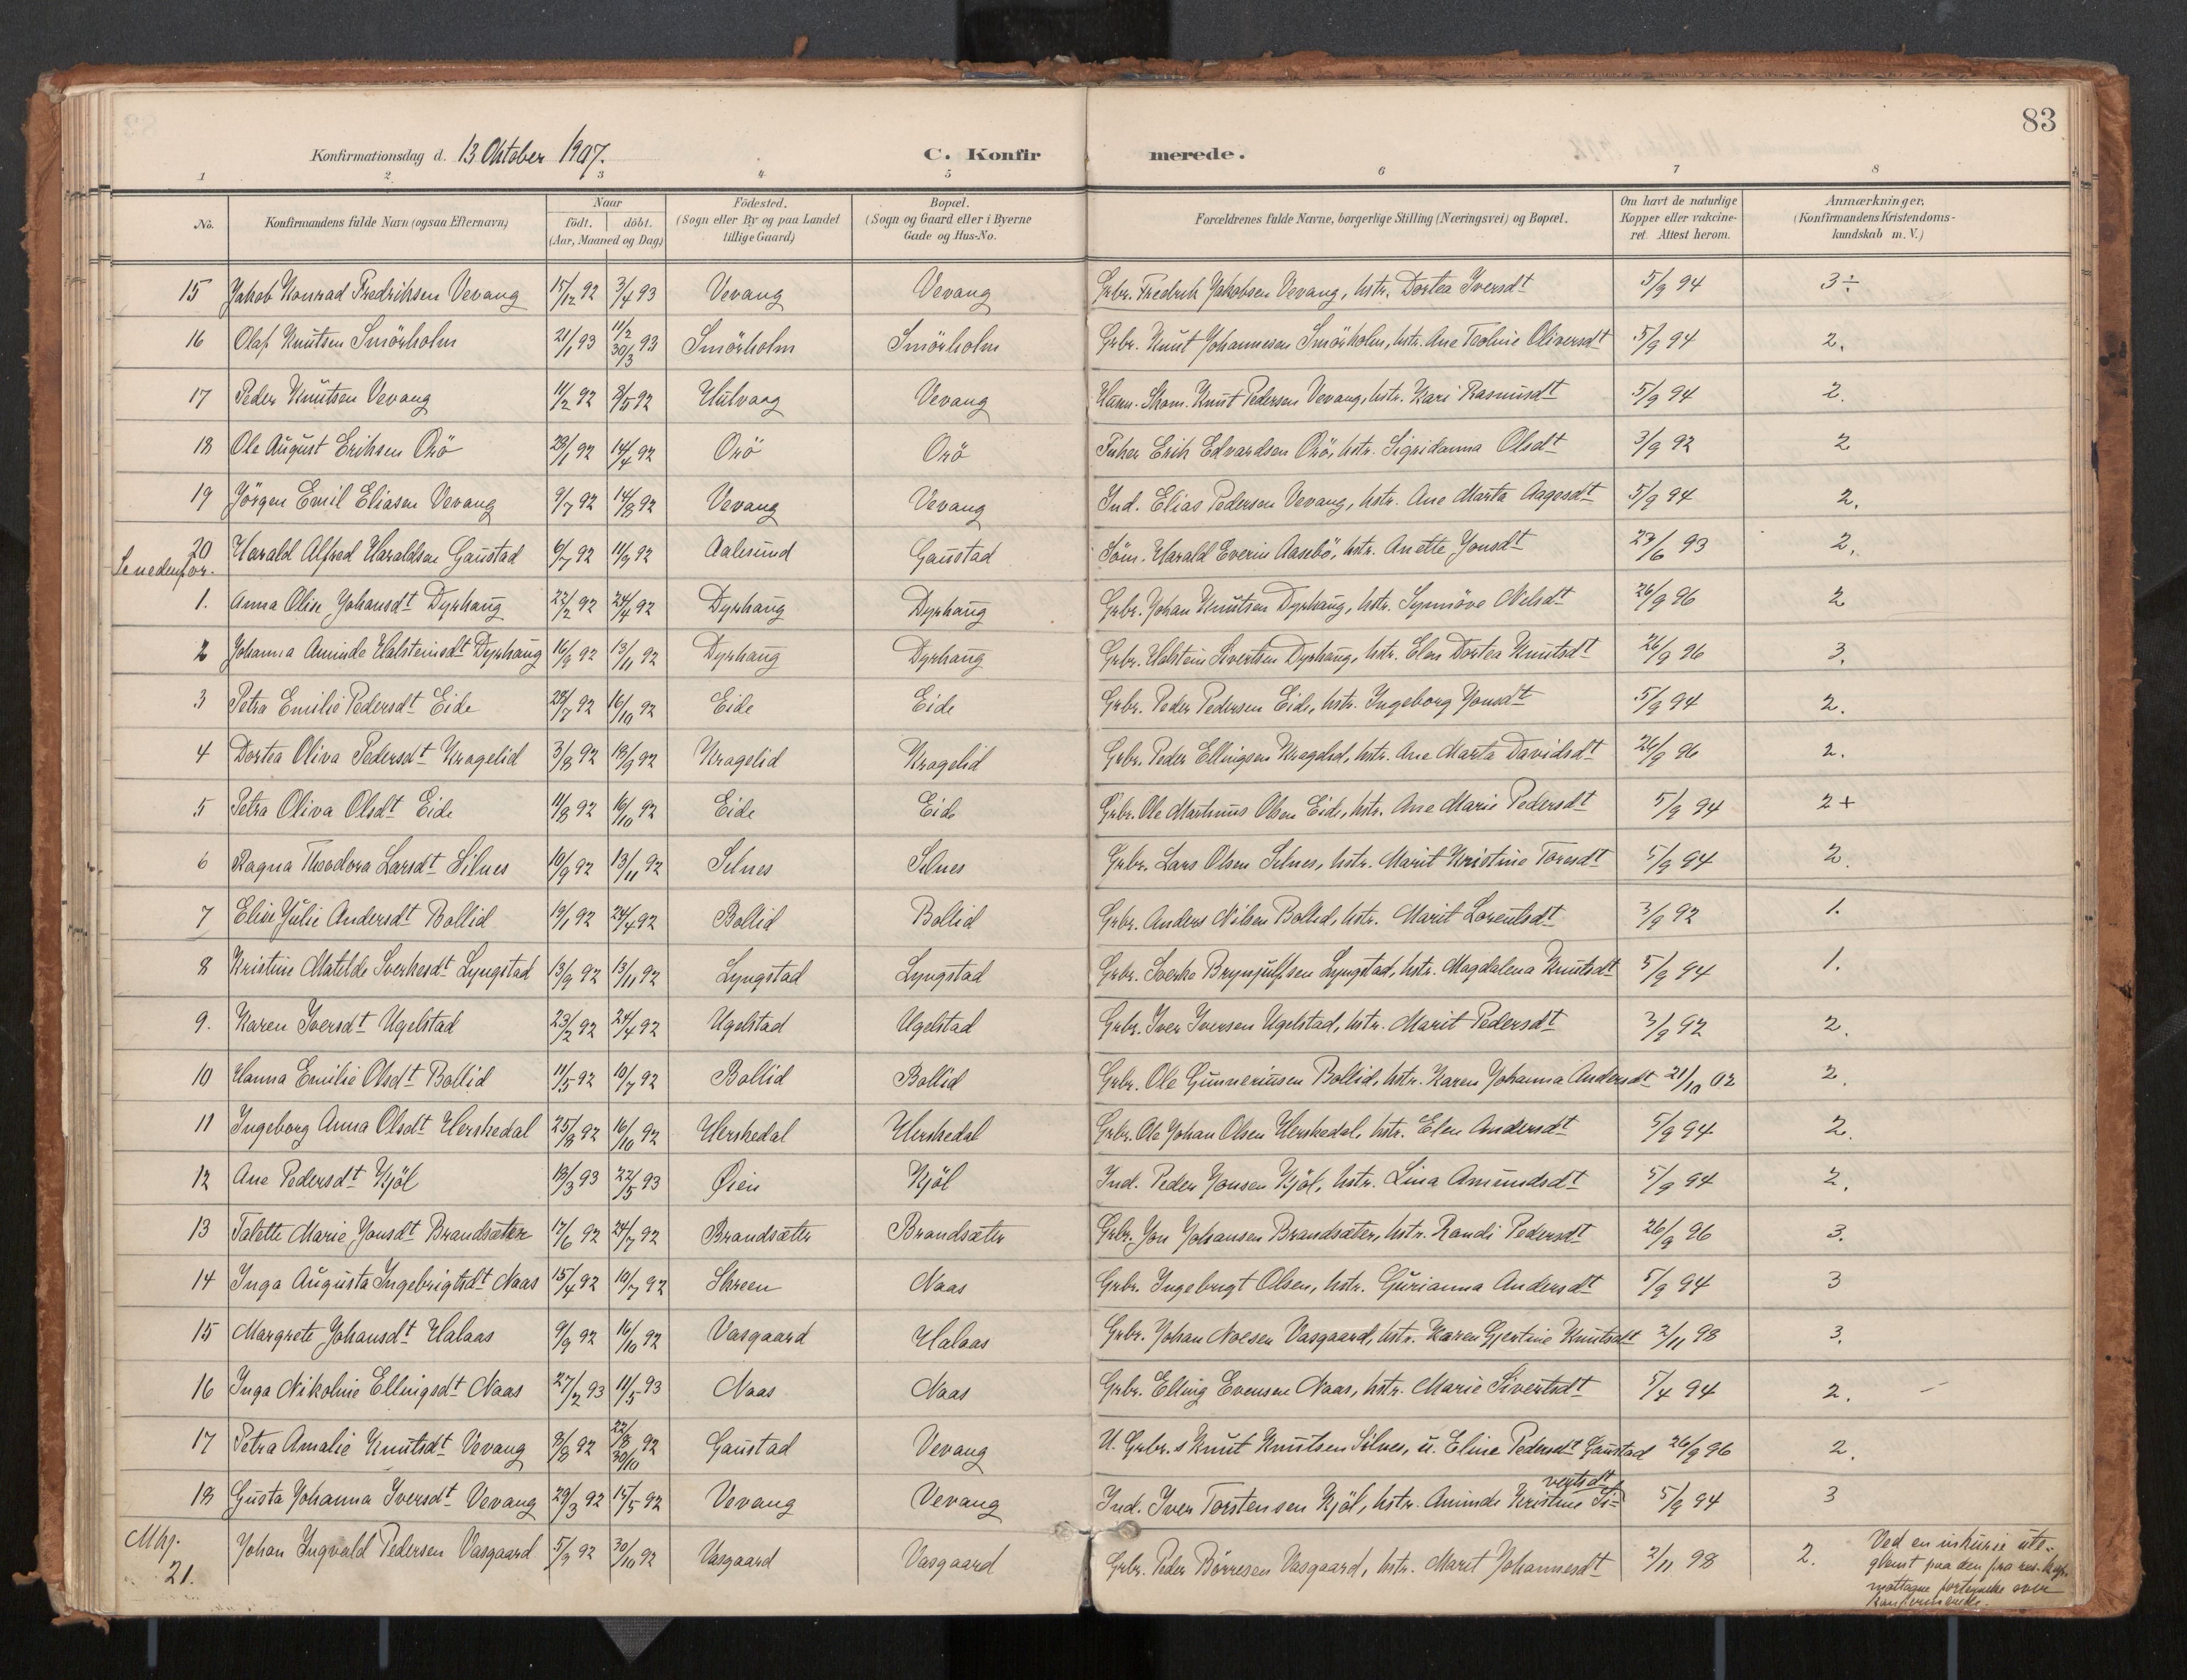 83
Konfirmationsdag d. 13 Oktober 1907. C. Konfirmerede.
1 2 3 4 5 6 7 8
No. Konfirmandens fulde Navn (ogsaa Efternavn) Naar født. døbt. (Aar, Maaned og Dag) Födested. (Sogn eller By og paa Landet tillige Gaard) Bopæl. (Sogn og Gaard eller i Byerne Gade og Hus-No. Forældrenes fulde Navne, borgerlige Stilling (Næringsvei) og Bopæl. Om havt de naturlige Kopper eller vakcineret. Attest herom. Anmærkninger. (Konfirmandens Kristendomskundskab m. V.)
15 Jakob Konrad Fredriksen Vevang 15/12 92 3/4 93 Vevang Vevang Grbr. Fredrik Jakobsen Vevang, hstr. Dortea Iversdt 5/9 94 3÷
16 Olaf Knutsen Smörholm 21/1 93 11/2 30/3 93 Smörholm Smörholm Grbr. Knut Johannesen Smörholm, hstr. Ane Toline Oliversdt 5/9 94 2.
17 Peder Knutsen Vevang 11/2 92 8/5 92 Hulvaag Vevang Husm. Skom. Knut Pedersen Vevang, hstr. Kari Rasmusdt 5/9 94 2.
18 Ole August Eriksen Orö 23/1 92 14/4 92 Orö Orö Fisker Erik Edvardsen Orö, hstr. Sigridanna Olsdt 3/9 92 2
19 Jörgen Emil Eliasen Vevang 9/7 92 14/8 92 Vevang Vevang Ind. Elias Pedersen Vevang, hstr. Ane Marta Aagesdt 5/9 94 2.
20 Harald Alfred Haraldsen Gaustad 6/7 92 11/9 92 Aalesund Gaustad Söm. Harald Everin Aasebö, hstr. Anette Jonsdt 23/6 93 2.
Se nedenfor.
1. Anna Olise Johansdt Dyrhaug 22/2 92 24/4 92 Dyrhaug Dyrhaug Grbr. Johan Knutsen Dyrhaug, hstr. Synnöve Nelsdt 26/9 96 2
2 Johanna Aminde Halsteinsdt Dyrhaug 16/9 92 13/11 92 Dyrhaug Dyrhaug Grbr. Halstein Sivertsen Dyrhaug, hstr. Elen Dortea Knutsdt 26/9 96 3.
3 Petra Emilie Pedersdt Eide 28/7 92 16/10 92 Eide Eide Grbr. Peder Pedersen Eide, hstr. Ingeborg Jonsdt 5/9 94 2.
4 Dortea Oliva Pedersdt Kragelid 3/8 92 18/9 92 Kragelid Kragelid Grbr. Peder Ellingsen Kragelid, hstr. Ane Marta Davidsdt 26/9 96 2.
5 Petra Oliva Olsdt Eide 11/8 92 16/10 92 Eide Eide Grbr. Ole Martinus Olsen Eide, hstr. Ane Marie Pedersdt 5/9 94 2+
6 Ragna Theodora Larsdt Silnes 10/9 92 13/11 92 Silnes Silnes Grbr. Lars Olsen Silnes, hstr. Marit Kristine Toresdt 5/9 94 2.
7 Elise Julie Andersdt Bollid 19/1 92 24/4 92 Bollid Bollid Grbr. Anders Nilsen Bollid, hstr. Marit Lorentsdt 3/9 92 1.
8 Kristine Matilde Sverkesdt Lyngstad 13/9 92 13/11 92 Lyngstad Lyngstad Grbr. Sverke Brynjulfsen Lyngstad, hstr. Magdalena Knutsdt 5/9 94 1.
9. Karen Iversdt Ugelstad 23/2 92 24/4 92 Ugelstad Ugelstad Grbr. Iver Iversen Ugelstad, hstr. Marit Pedersdt 3/9 92 2.
10 Hanna Emilie Olsdt Bollid 11/5 92 10/7 92 Bollid Bollid Grbr. Ole Gunneriusen Bollid, hstr. Karen Johanna Andersdt 21/10 02 2.
11 Ingeborg Anna Olsdt Herskedal 25/8 92 16/10 92 Herskedal Herskedal Grbr. Ole Johan Olsen Herskedal, hstr. Elen Andersdt 5/9 94 2.
12 Ane Pedersdt Kjöl 18/3 93 22/5 93 Øien Kjöl Ind. Peder Jonsen Kjöl, hstr. Lina Amundsdt 5/9 94 2.
13 Talette Marie Jonsdt Brandsæter 17/6 92 24/7 92 Brandsætr Brandsætr Grbr. Jon Johansen Brandsæter, hstr. Randi Pedersdt 26/9 96 3.
14 Inga Augusta Ingebrigtsdt Naas 15/4 92 10/7 92 Skreen Naas Grbr. Ingebrigt Olsen, hstr. Gurianna Andersdt 5/9 94 3
15 Margrete Johansdt Halaas 9/9 92 16/10 92 Vasgaard Halaas Grbr. Johan Noesen Vasgaard, hstr. Karen Gjertine Knutsdt 2/11 98 3.
16 Inga Nikoline Ellingsdt Naas 27/2 93 11/5 93 Naas Naas Grbr. Elling Evensen Naas, hstr. Marie Sivertsdt 5/4 94 2.
17 Petra Amalie Knutsdt Vevang 3/8 92 22/8 30/10 92 Gaustad Vevang U. Grbr. s Knut Knutsen Silnes, u. Eline Pedersdt Gaustad 26/9 96 2.
18 Gusta Johanna Iversdt Vevang 29/3 92 15/5 92 Vevang Vevang Ind. Iver Torstensen Kjöl, hstr. Aminde Kristine Si-vertsdt 5/9 94 3
Mkj. 21. Johan Ingvald Pedersen Vasgaard 5/9 92 30/10 92 Vasgaard Vasgaard Grbr. Peder Börresen Vasgaard, hstr. Marit Johannesdt 2/11 98 2. Ved en inkurie ute-
glemt paa den fra res. kap.
mottagne fortegnelse over
konfirmerede.